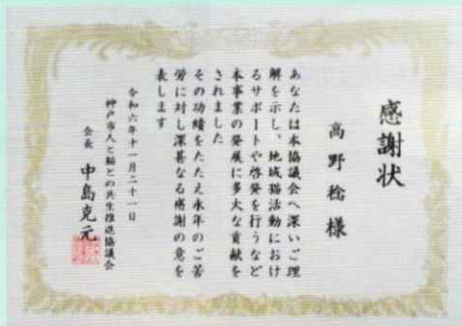 感謝状
高野稔様
あなたは本協議会へ深いご理
解を示し、地域猫活動におけ
るサポートや啓発を行うなど
本事業の発展に多大な貢献を
されました
その功績をたたえ永年のご苦
労に対し深甚なる感謝の意を
表します
令和六年十一月二十一日
神戸市人と猫との共生推進協議会
会長 中島克元